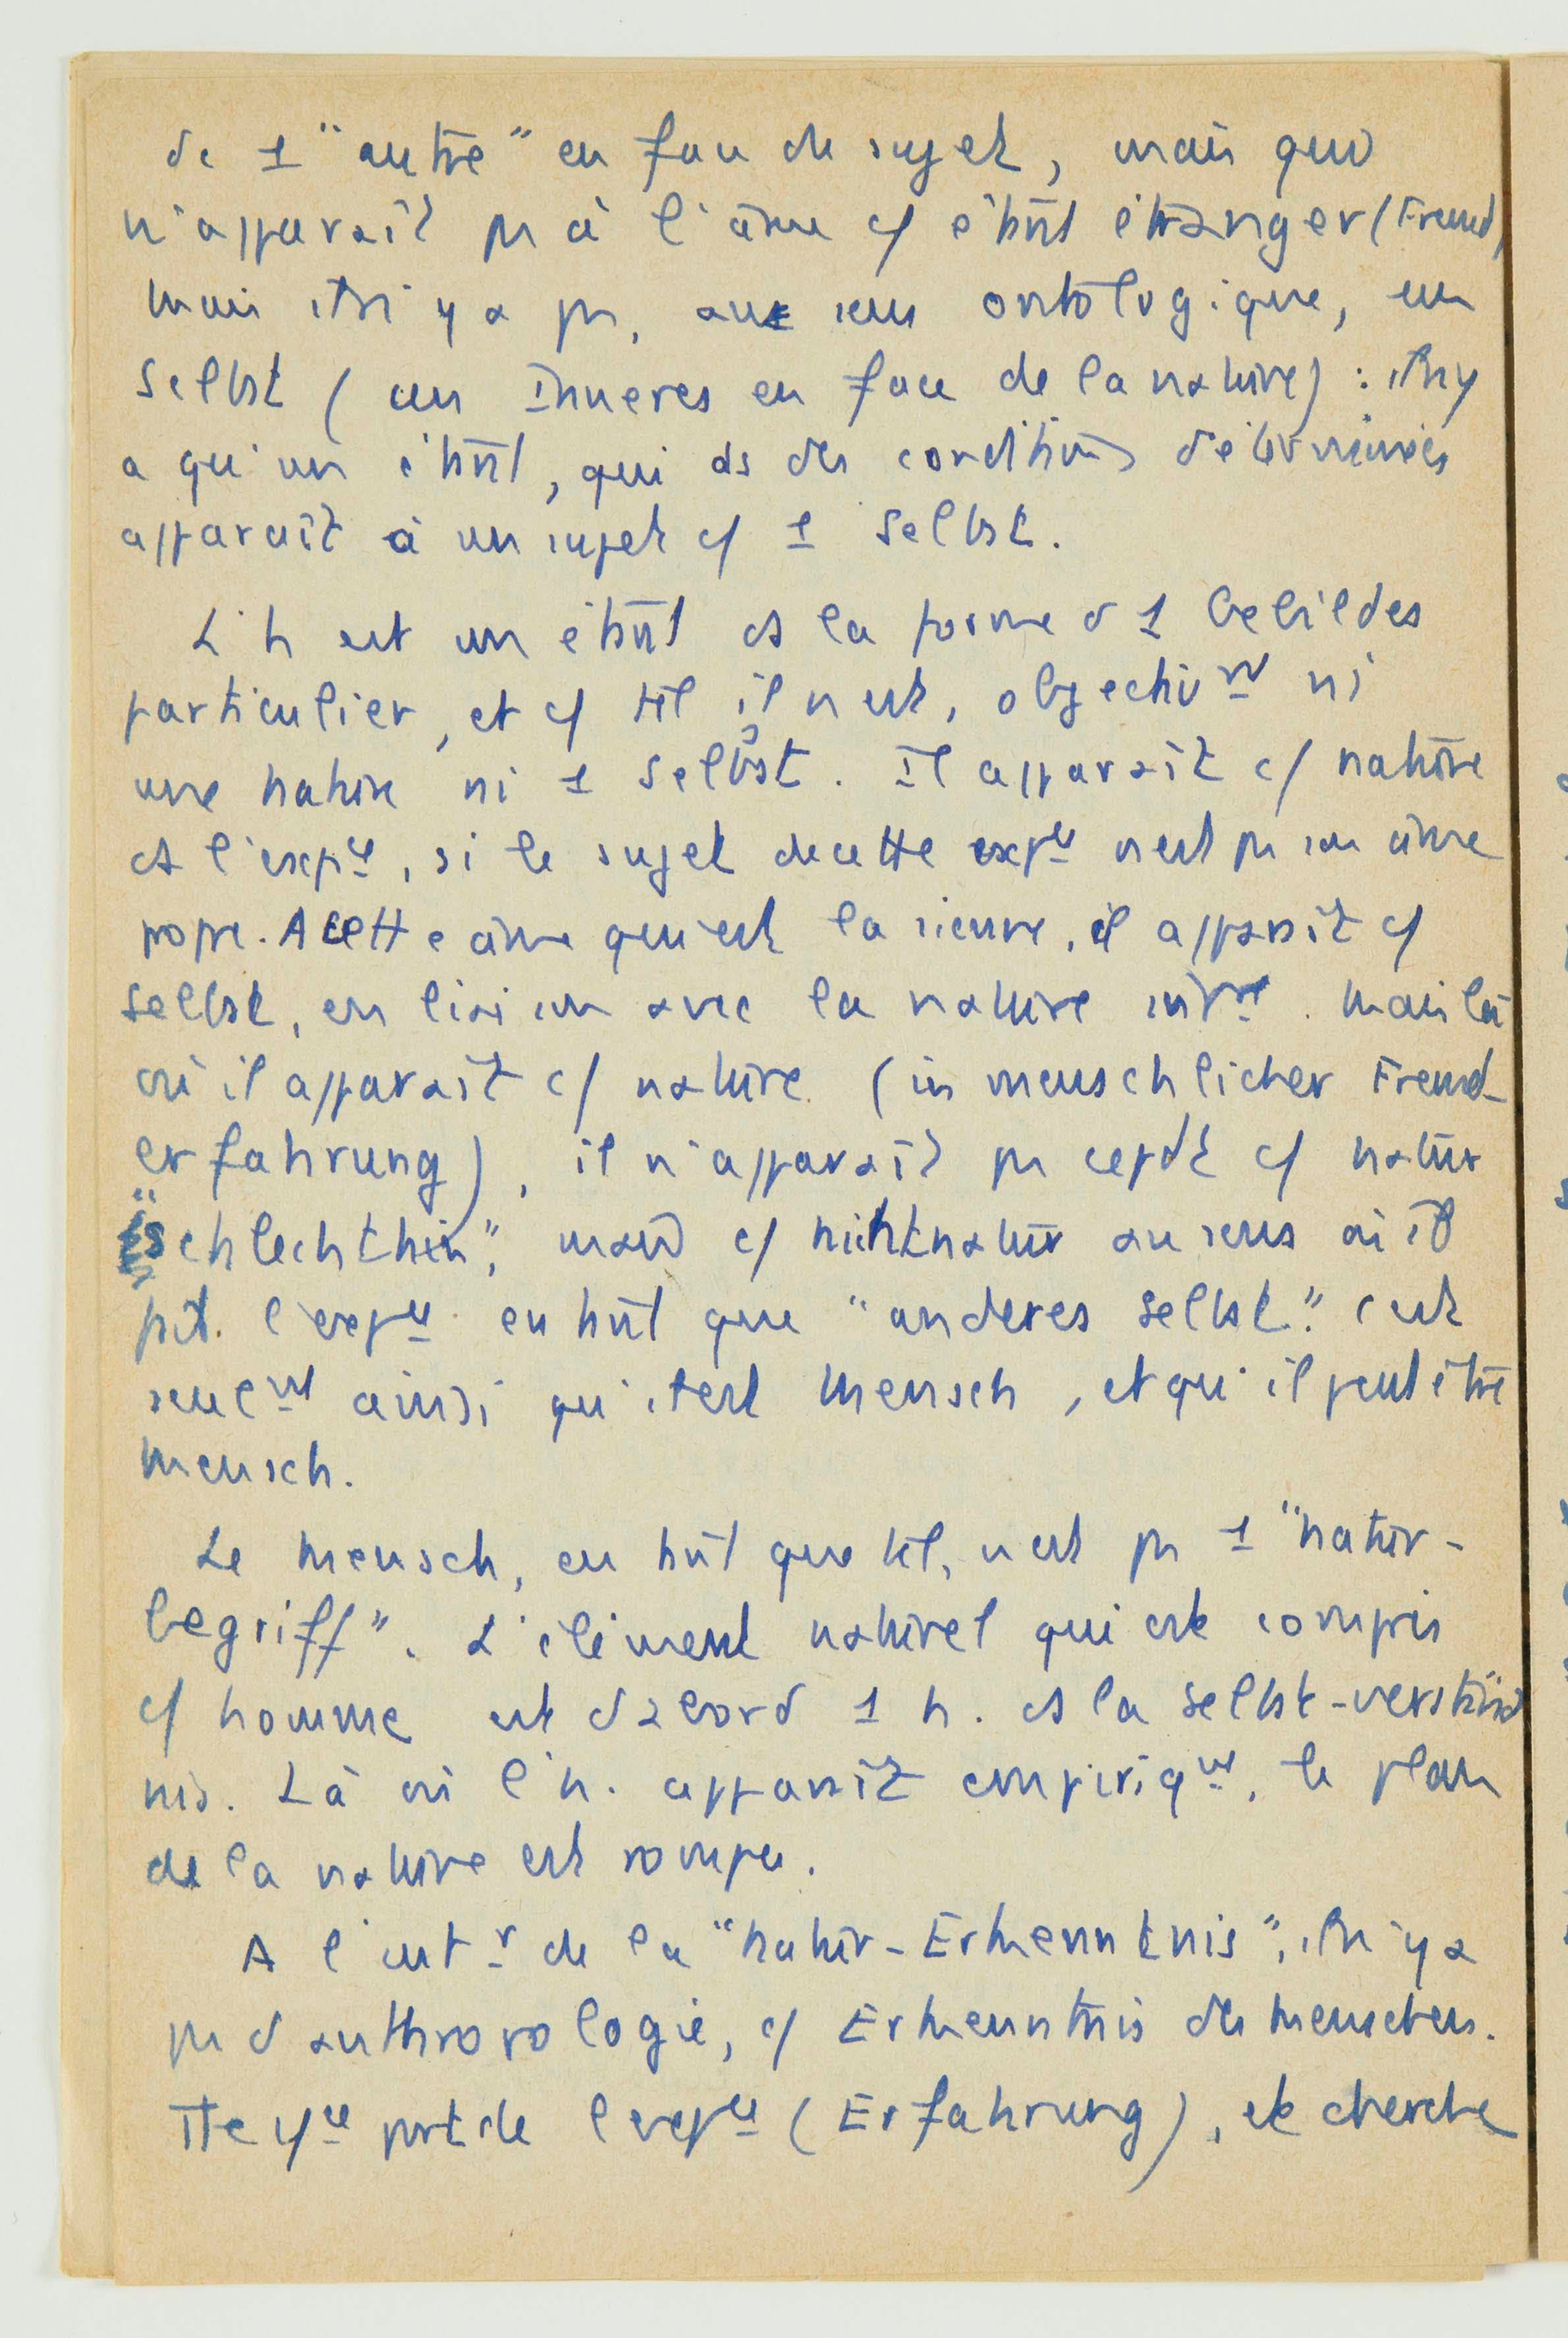 de 1 "autre" en face du sujet, mais qui
n'apparaît pas à l'âme c/ étant étranger (Fremd)
Mais il n'y a pas, au sens ontologique, un
Selbst (un Inneres en face de la nature) : il n'y
a qu'un étant, qui ds des conditions déterminées
apparaît à un sujet c/ 1 Selbst.
L'h est un étant ds la forme d'1 Gebildes
particulier, et c/ tel il n'est, objectivᵗ ni
une nature ni 1 Selbst. Il apparaît c/ nature
ds l'expᶜᵉ, si le sujet de cette expᶜᵉ n'est pas son âme
propre. A cette âme qui est la sienne, il apparaît c/
Selbst, en liaison avec la nature . Mais là
où il apparaît c/ nature (in menschlicher Fremd-
erfahrung), il n'apparaît pas cepdt c/ natur
"schlechthin", mais c/ nichtnatur au sens où il
l'expᶜᵉ en tant que "anderes Selbst". C'est
seulᵗ ainsi qu'il est Mensch, et qu'il peut être
Mensch.
Le Mensch, en tant que tel, n'est pas 1 "Natur-
begriff". L'élément naturel qui est compris
c/ homme est d'abord 1 h. ds la Selbst-verständ
nis. Là où l'h. apparaît empiriqᵗ, le plan
de la nature est rompu.
A l'intʳ de la "Natur-Erkenntnis", il n'y a
pas d'anthropologie, c/ Erkenntnis des Menschen.
Tte part de l'expᶜᵉ (Erfahrung), et cherche